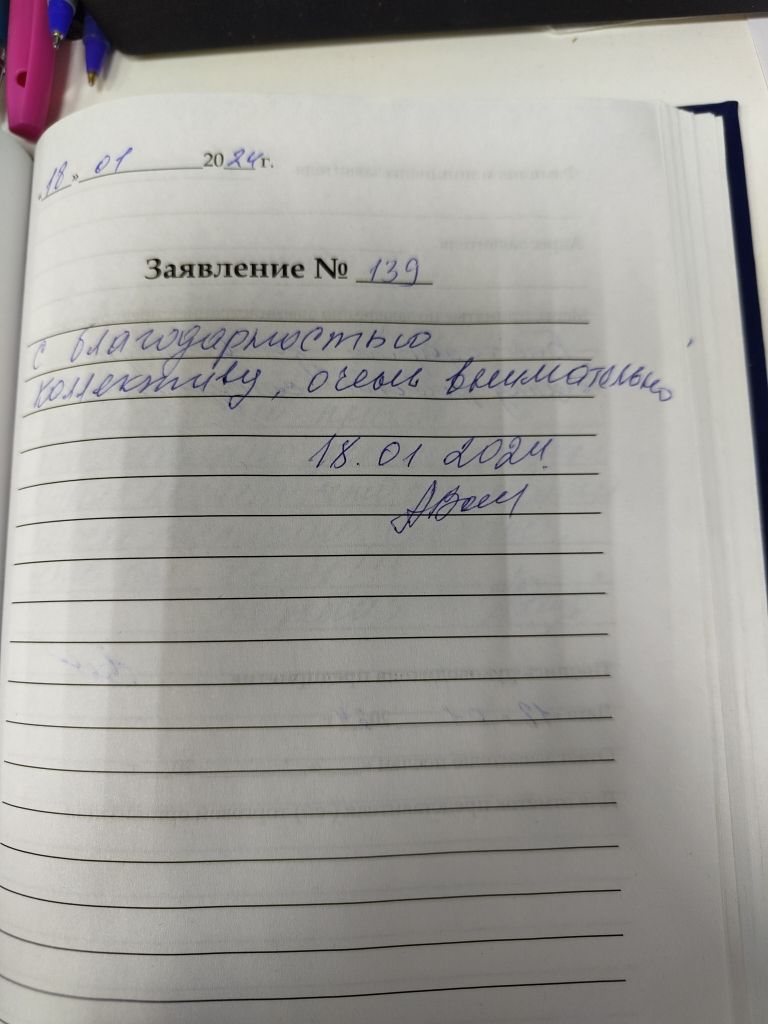 «18» 01 2024 г.
Заявление № 139
С благодарностью
коллективу, очень внимательно
18.01 2024.